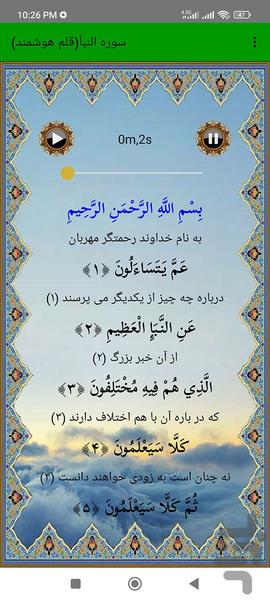 10:26 PM
سوره النبأ(قلم هوشمند)
0m,2s
بِسْمِ اللَّهِ الرَّحْمَنِ الرَّحِيمِ
به نام خداوند رحمتگر مهربان
عَمَّ يَتَسَاءَلُونَ ﴿۱﴾
درباره چه چیز از یکدیگر می پرسند (۱)
عَنِ النَّبَإِ الْعَظِيمِ ﴿۲﴾
از آن خبر بزرگ (۲)
الَّذِي هُمْ فِيهِ مُخْتَلِفُونَ ﴿۳﴾
که در باره آن با هم اختلاف دارند (۳)
كَلَّا سَيَعْلَمُونَ ﴿۴﴾
نه چنان است به زودی خواهند دانست (۴)
ثُمَّ كَلَّا سَيَعْلَمُونَ ﴿۵﴾